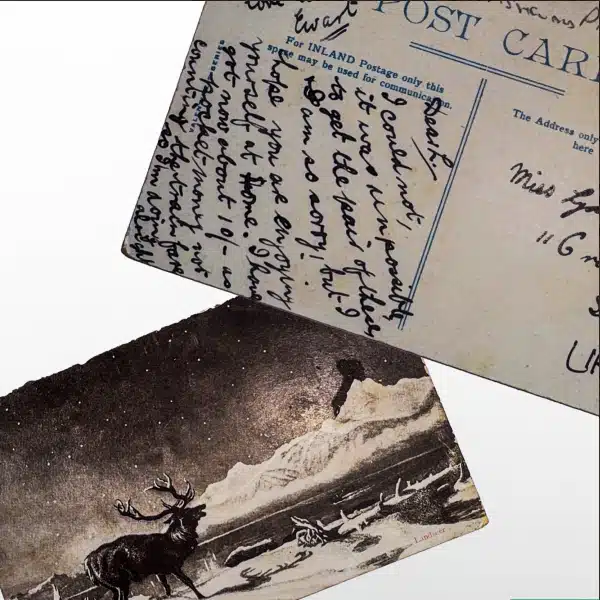 POST CAR
For INLAND Postage only this
space may be used for communication.
The Address only
here
Dear
I could not,
it was impossible
to get the pair of these
I am so sorry! but I
hope you are enjoying
yourself at home. I have
got now about 10/- as
pocket money not
counting the train fare
so I'm doing
alright
love
Ewart
Miss
11 G
Landseer